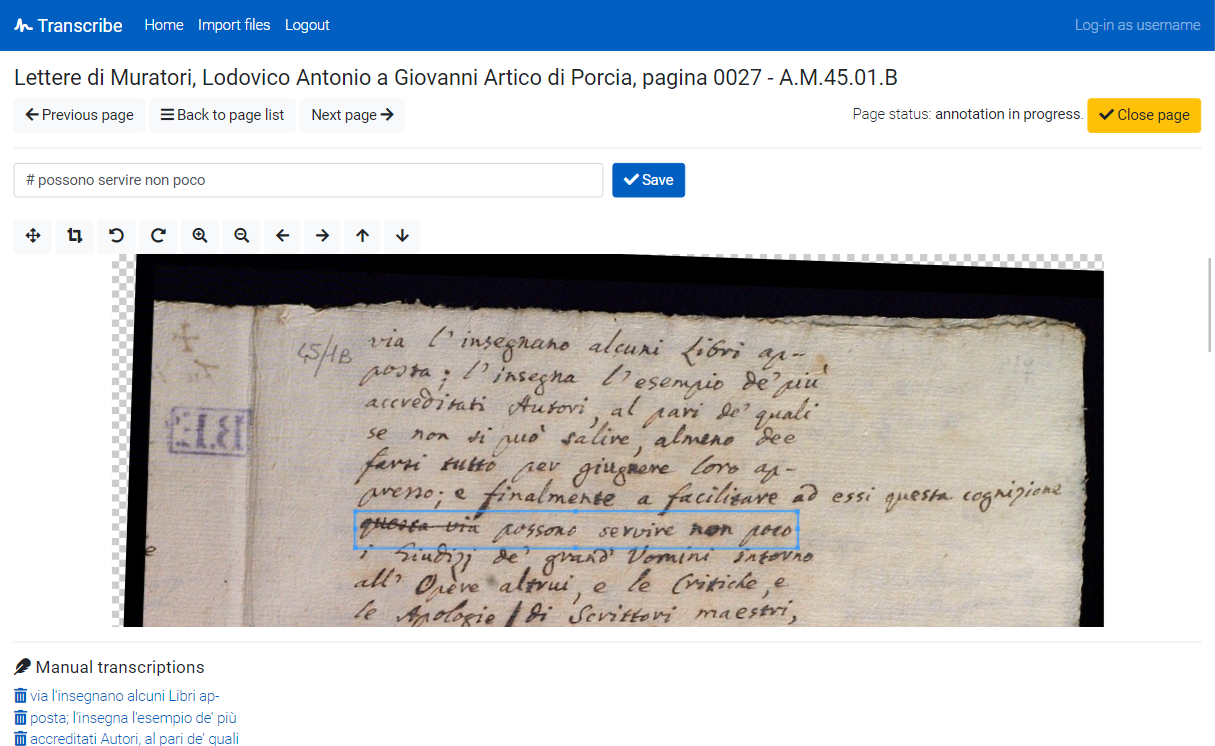 Transcribe Home Import files Logout Log-in as username
Lettere di Muratori, Lodovico Antonio a Giovanni Artico di Porcia, pagina 0027 - A.M.45.01.B
Previous page Back to page list Next page Page status: annotation in progress. Close page
# possono servire non poco Save
45/1B via l'insegnano alcuni Libri ap-
posta; l'insegna l'esempio de' più
accreditati Autori, al pari de' quali
se non si può salire, almeno dee
farsi tutto per giugnere loro ap-
presso; e finalmente a facilitare ad essi questa cognizione
questa via possono servire non poco
i Giudizj de' grand' Uomini intorno
all' Opere altrui, e le Critiche, e
le Apologie di Scrittori maestri,
Manual transcriptions
via l'insegnano alcuni Libri ap-
posta; l'insegna l'esempio de' più
accreditati Autori, al pari de' quali